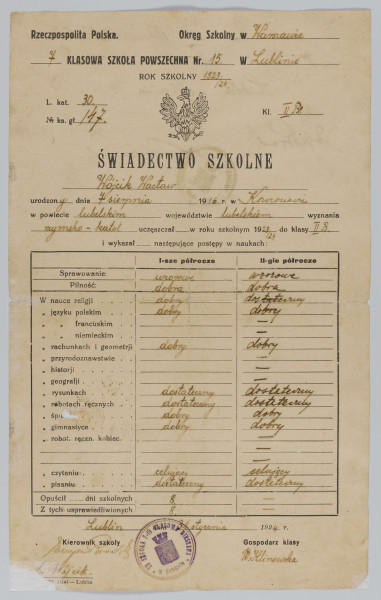 Rzeczpospolita Polska. Okręg Szkolny w Warszawie
7 KLASOWA SZKOŁA POWSZECHNA Nr. 15 w Lublinie
ROK SZKOLNY 1923/24
L. kat. 30 Kl. II B.
№ ks. gł. 147.
ŚWIADECTWO SZKOLNE
Wójcik Wacław
urodzony dnia 7 sierpnia 1916 r. w
w powiecie lubelskim województwie lubelskiem wyznania
rzymsko-katol uczęszczał w roku szkolnym 1923/24 do klasy II B.
i wykazał następujące postępy w naukach:
I-sze półrocze II-gie półrocze
Sprawowanie: wzorowe wzorowe
Pilność: dobra dobra
W nauce religji dobry dostateczny
" języku polskim dobry dobry
" " francuskim —
" " niemieckim —
" rachunkach i geometrji dobry dobry
" przyrodoznawstwie —
" historji —
" geografji —
" rysunkach dostateczny dostateczny
" robotach ręcznych dostateczny dostateczny
" śpi dobry dobry
" gimnastyce dobry dobry
" robot. ręczn. kobiec. —
—
" czytaniu celujący celujący
" pisaniu dostateczny dostateczny
Opuścił dni szkolnych 8 —
Z tych: usprawiedliwionych 8. —
Lublin stycznia 1924 r.
Kierownik szkoły Gospodarz klasy
Wójcik.
Lublin